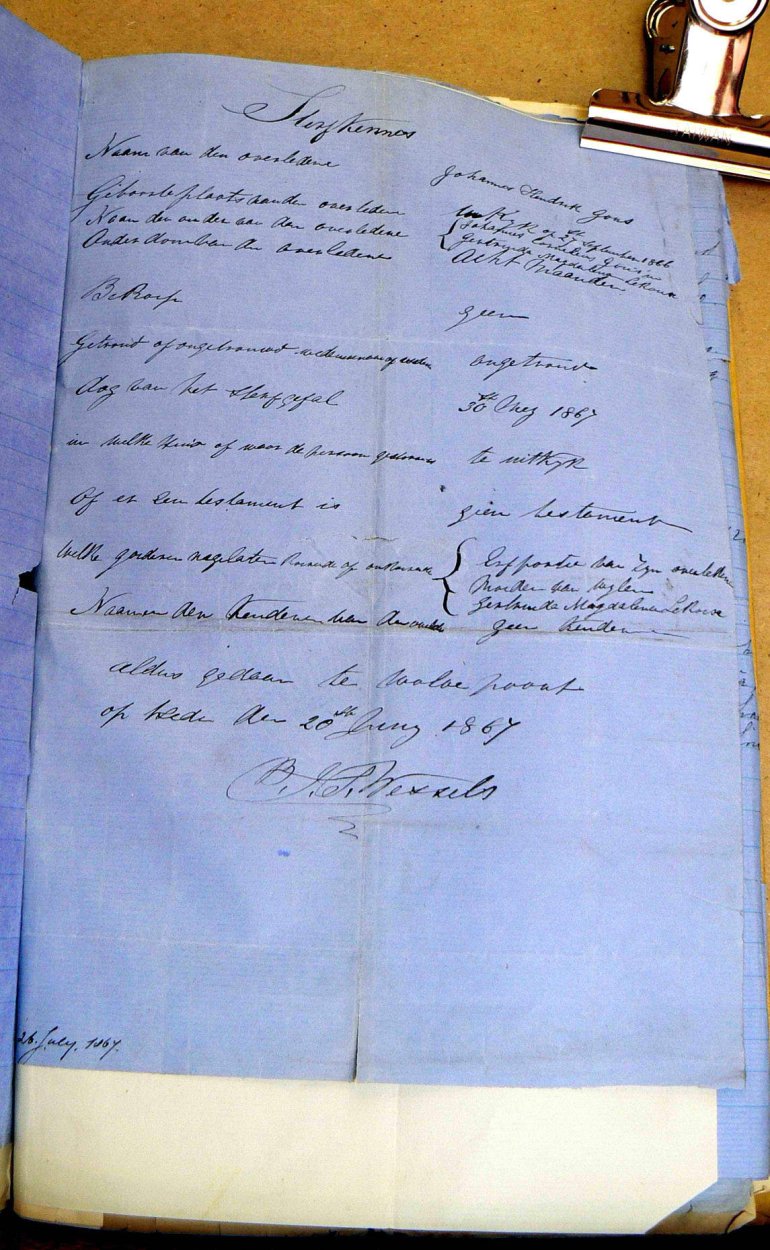 Sterfkennes
Naam van den overledene Johannes Hendrik Gous
Geboorteplaats van den overleden uitKyk op 27ste September 1866
Naam der ouder van den overledene { Johannes Cornelius Gous en
Gertruida Magdalena LeRoux
Ouderdom van den overledene acht maanden
Beroep geen
Getroud of ongetrouwd ongetroud
dag van het sterfgefal 30ste Mey 1867
in welke Huis of waar de persoon gestorven te uitkyk
Of er een testament is geen testament
welke goederen nagelaten Roerende of onRoerende { Erfportie van Zyn overleden
Moeder van wylen
Gertruida Magdalena LeRoux
Namen der Kenderen van den geen Kenderen
aldus gedaan te wolve poort
op hede den 20ste Juny 1867
P. J. S. Wessels
26. July. 1867.
TAIWAN